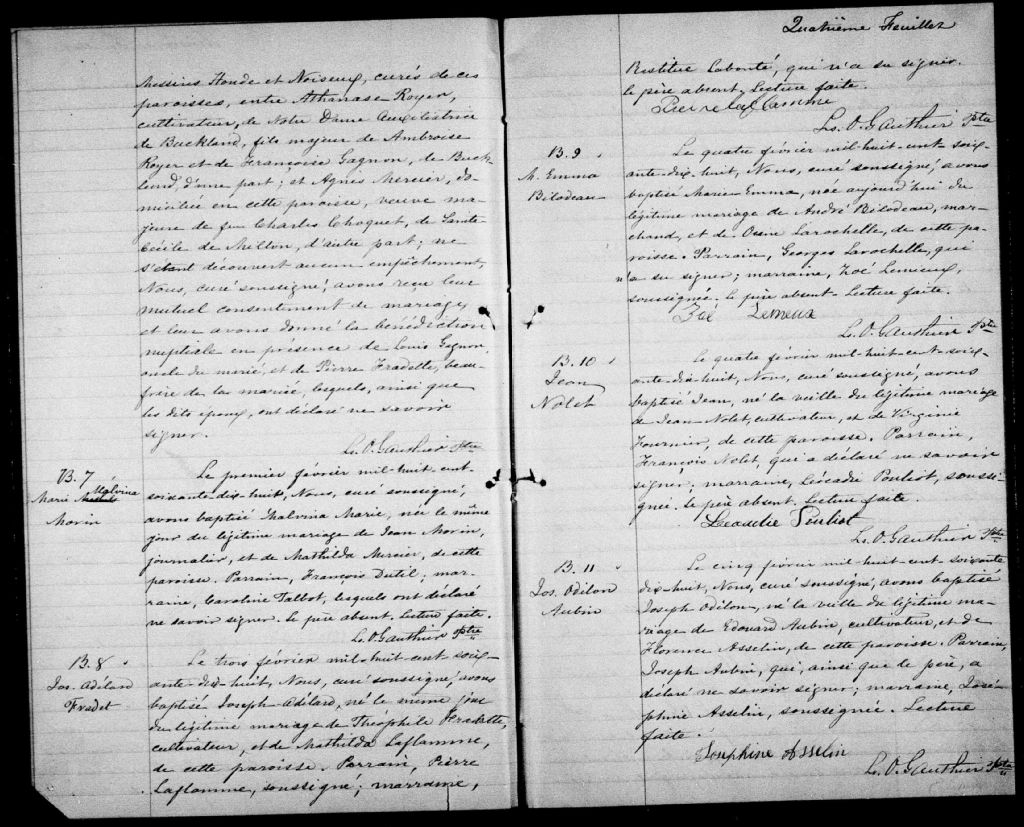 Messires Houde et Noiseux, curés de ces
paroisses, entre Athanase Royer,
cultivateur, de Notre Dame Auxiliatrice
de Buckland, fils majeur de Ambroise
Royer et de Françoise Gagnon, de Buck-
land, d'une part; et Agnès Mercier, do-
miciliée en cette paroisse, veuve ma-
jeure de feu Charles Choquet, de Sainte
Cécile de Milton, d'autre part; ne
s'étant découvert aucun empêchement,
Nous, curé soussigné, avons reçu leur
mutuel consentement de mariage
et leur avons donné la bénédiction
nuptiale en présence de Louis Gagnon,
oncle du marié, et de Pierre Fradette, beau-
frère de la mariée, lesquels, ainsi que
les dits époux, ont déclaré ne savoir
signer.
Ls. O. Gauthier Ptre
B. 7
Marie Malvina
Morin
Le premier février mil-huit-cent-
soixante-dix-huit, Nous, curé soussigné,
avons baptisé Malvina Marie, née le même
jour du légitime mariage de Jean Morin,
journalier, et de Mathilda Mercier, de cette
paroisse. Parrain, François Dutil; mar-
raine, Caroline Talbot, lesquels ont déclaré
ne savoir signer. Le père absent, Lecture faite.
Ls. O. Gauthier Ptre
B. 8
Jos. Adélard
Fradet
Le trois février mil-huit-cent-soix-
ante-dix-huit, Nous, curé soussigné, avons
baptisé Joseph-Adélard, né le même jour
du légitime mariage de Théophile Fradette,
cultivateur, et de Mathilda Laflamme,
de cette paroisse. Parrain, Pierre
Laflamme, soussigné; marraine,
Quatrième Feuillet
Restitue Labonté, qui n'a su signer.
Le père absent, Lecture faite.
Pierre Laflamme
Ls. O. Gauthier Ptre
B. 9
M. Emma
Bilodeau
Le quatre février mil-huit-cent-soix-
ante-dix-huit, Nous, curé soussigné, avons
baptisé Marie-Emma, née aujourd'hui du
légitime mariage de André Bilodeau, mar-
chand, et de Larochelle, de cette pa-
roisse. Parrain, Georges Larochelle, qui
n'a su signer; marraine, Zoé Lemieux,
soussignée. Le père absent. Lecture faite.
Zoé Lemieux
Ls. O. Gauthier Ptre
B. 10
Jean
Nolet
Le quatre février mil-huit-cent-soix-
ante-dix-huit, Nous, curé soussigné, avons
baptisé Jean, né la veille du légitime mariage
de Jean Nolet, cultivateur, et de Virginie
Fournier, de cette paroisse. Parrain,
François Nolet, qui a déclaré ne savoir
signer; marraine, Léocadie Pouliot, soussi-
gnée. Le père absent. Lecture faite.
Leocadie Pouliot
Ls. O. Gauthier Ptre
B. 11
Jos. Odilon
Aubin
Le cinq février mil-huit-cent-soixante
dix-huit, Nous, curé soussigné, avons baptisé
Joseph Odilon, né la veille du légitime ma-
riage de Edouard Aubin, cultivateur, et de
Florence Asselin, de cette paroisse. Parrain,
Joseph Aubin, qui, ainsi que le père, a
déclaré ne savoir signer; marraine, José-
phine Asselin, soussignée. Lecture
faite.
Josephine Asselin
Ls. O. Gauthier Ptre